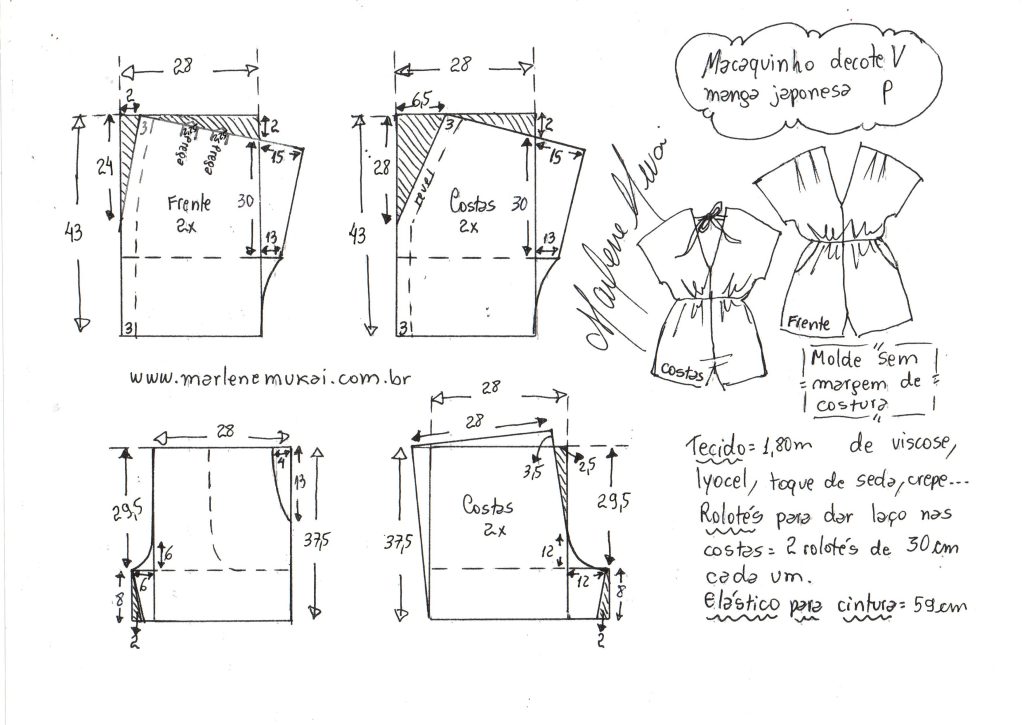 Macaquinho decote V
manga japonesa P
28
2
3
prega
prega
2
24
15
43
Frente
2x
30
13
3
28
6,5
3
2
28
15
revel
43
Costas
2x
30
13
3
Marlene Mukai
Costas
Frente
Molde sem
margem de
costura
www.marlenemukai.com.br
28
4
13
29,5
37,5
6
6
8
2
28
28
3,5
2,5
Costas
2x
37,5
29,5
12
12
8
2
Tecido = 1,80m de viscose,
lyocel, toque de seda, crepe...
Rolotés para dar laço nas
costas = 2 rolotés de 30 cm
cada um.
Elástico para cintura = 59 cm